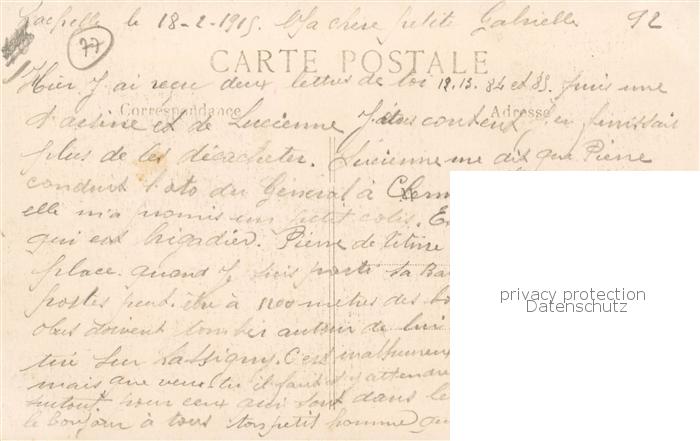 le 18-2-1915. Ma chère petite Gabrielle 92
77
CARTE POSTALE
Hier j'ai reçu deux lettres de toi 12.13. 84 et 85. puis une
Correspondance Adresse
et de Lucienne content finissait
plus de les décacheter. Lucienne me dit que Pierre
conduit l'oto du Général à
elle m'a promis un petit colis.
qui est brigadier. Pierre de Titine
place. quand j suis parti sa
postes peut-être à 1200 mètres des
obus doivent tomber autour de lui
tiré sur Lassigny. C'est malheureux
mais que veux tu il faut s'y attendre
surtout pour ceux qui sont dans le
le bonjour à tous ton petit homme
privacy protection
Datenschutz